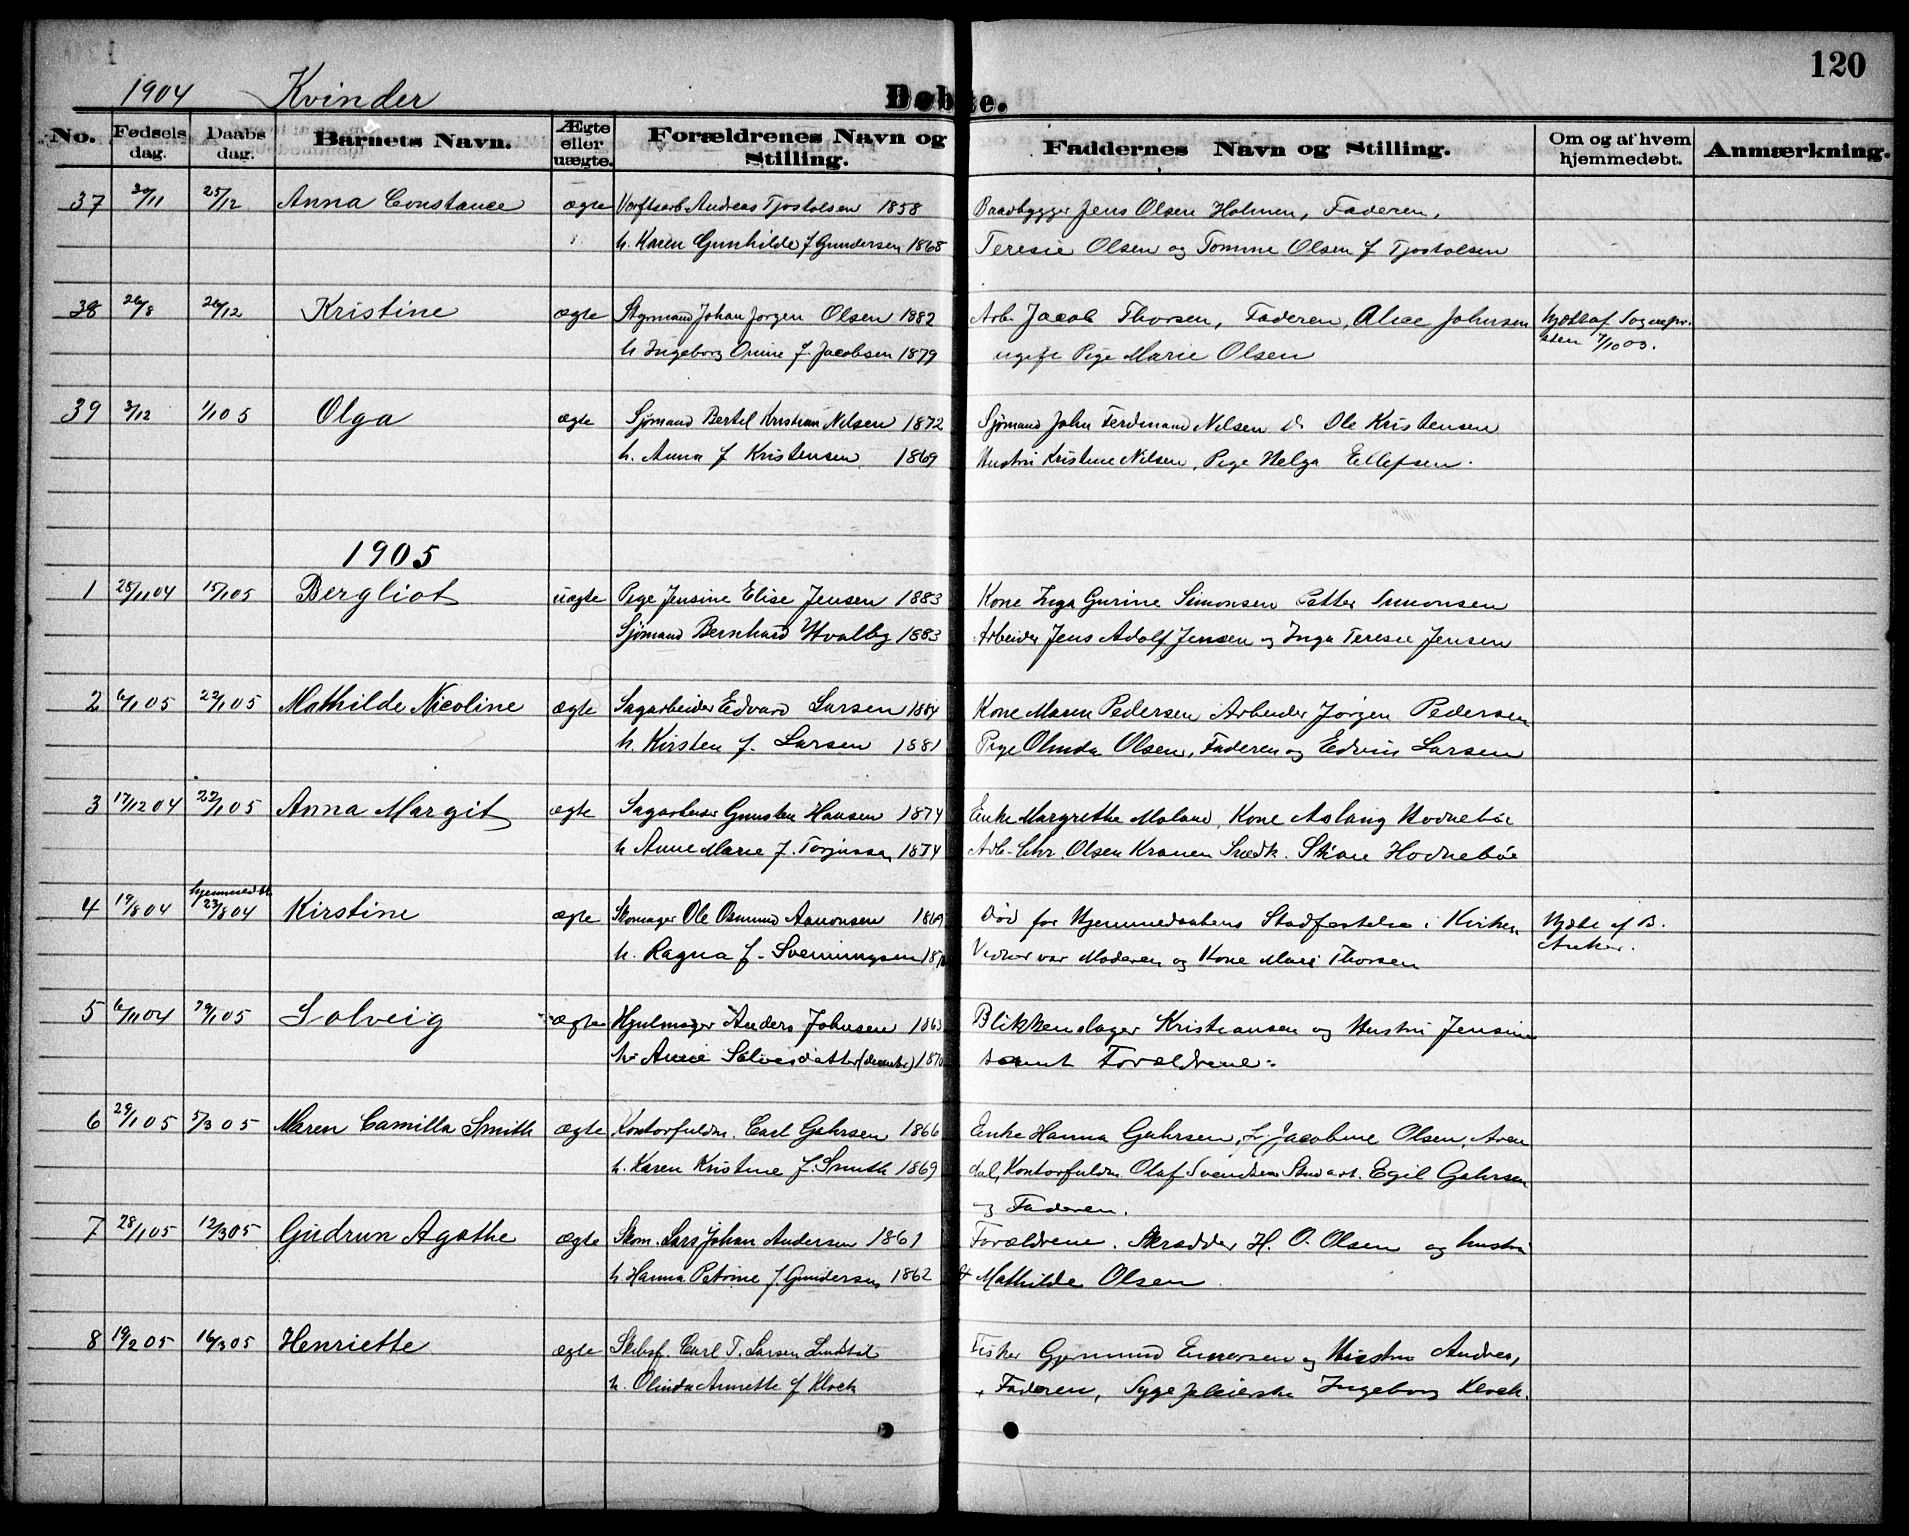 120
1904 Kvinder Døbte.
No. Fødsels dag. Daabs dag. Barnets Navn. Ægte eller uægte. Forældrenes Navn og Stilling. Faddernes Navn og Stilling. Om og af hvem hjemmedøbt. Anmærkning.
37 30/11 25/12 Anna Constance ægte Verftsarb. Andreas Tjostolsen 1858 Baadbygger Jens Olsen Holmen, Faderen,
h. Karen Gunhilde f Gundersen 1868 Teresie Olsen og Tomine Olsen f Tjostolsen
38 26/8 26/12 Kristine ægte Styrmand Johan Jørgen Olsen 1882 Arb. Jacob Thorsen, Faderen, Alice Johnsen
h Ingeborg f. Jacobsen 1879 ugift Pige Marie Olsen
39 3/12 1/1 05 Olga ægte Sjømand Bertel Kristian Nilsen 1872 Sjømand John Ferdinand Nilsen Ole Kristensen
h. Anna f Kristensen 1869 Hustru Kristine Nilsen, Pige Helga Ellefsen.
1905
1 28/11 04 15/1 05 Bergliot uægte Pige Jensine Elise Jensen 1883 Kone Inga Gurine Simonsen Petter Simonsen
Sjømand Bernhard Hvalby 1883 Arbeider Jens Adolf Jensen og Inga Teresie Jensen
2 6/1 05 22/1 05 Mathilde Nicoline ægte Sagarbeider Edvard Larsen 1884 Kone Maren Pedersen Arbeider Jørgen Pedersen
h. Kirsten f. Larsen 1881 Pige Olinda Olsen, Faderen og Edvin Larsen
3 17/12 04 22/1 05 Anna Margit ægte Sagarbeider Gunsten Hansen 1874 Enke Margrethe Moland, Kone Aslaug Hodnebøe
h Anne Marie f. Torjussen 1874 Arb. Chr. Olsen Kranen Snedk. Hodnebøe
4 19/8 04 hjemmedbt. 23/8 04 Kirstine ægte Skomager Ole Osmund Aanonsen 1869 Død før Hjemmedaabens Stadfæstelse i Kirken Hjdbt af B. Anker.
h. Ragna f. Sveinungsen Vidner var Moderen og Kone Mari Thorsen
5 6/11 04 29/1 05 Solveig ægte Hjulmager Anders Johnsen 1863 Blikkenslager Kristiansen og Hustru Jensine
h. Anne Salvesdatter 1870 samt Forældrene.
6 29/1 05 5/3 05 Maren Camilla Smith ægte Kontorfuldm. Carl Gahrsen 1866 Enke Hanna Gahrsen, Fr Jacobine Olsen, Aren
h. Karen Kristine f. Smith 1869 dal, Kontorfuldm. Olaf Svendsen Stud art. Egil Gahrsen
og Faderen.
7 28/1 05 12/3 05 Gudrun Agathe ægte Skom. Lars Johan Andersen 1861 Forældrene. Skrædder H. O. Olsen og hustru
h Hanna Petrine f. Gundersen 1862 Mathilde Olsen
8 19/2 05 16/3 05 Henriette ægte Skibsf. Carl T. Larsen Lindtal Fisker Gjermund Einersen og Hustru Andrea,
h. Olinda Annette f Klock Faderen, Sygepleierske Ingeborg Klock.